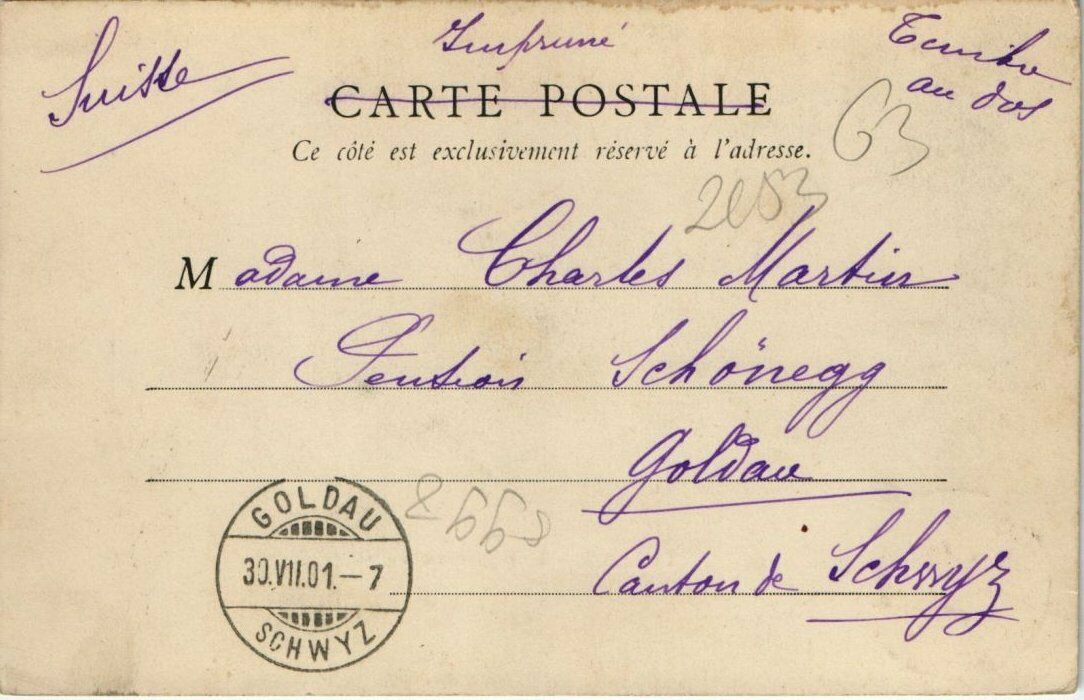 Suisse
Imprimé
Timbre
au dos
CARTE POSTALE
Ce côté est exclusivement réservé à l'adresse.
63
Madame Charles Martin
Pension Schönegg
Goldau
Canton de Schwyz
GOLDAU
30.VII.01.–7
SCHWYZ